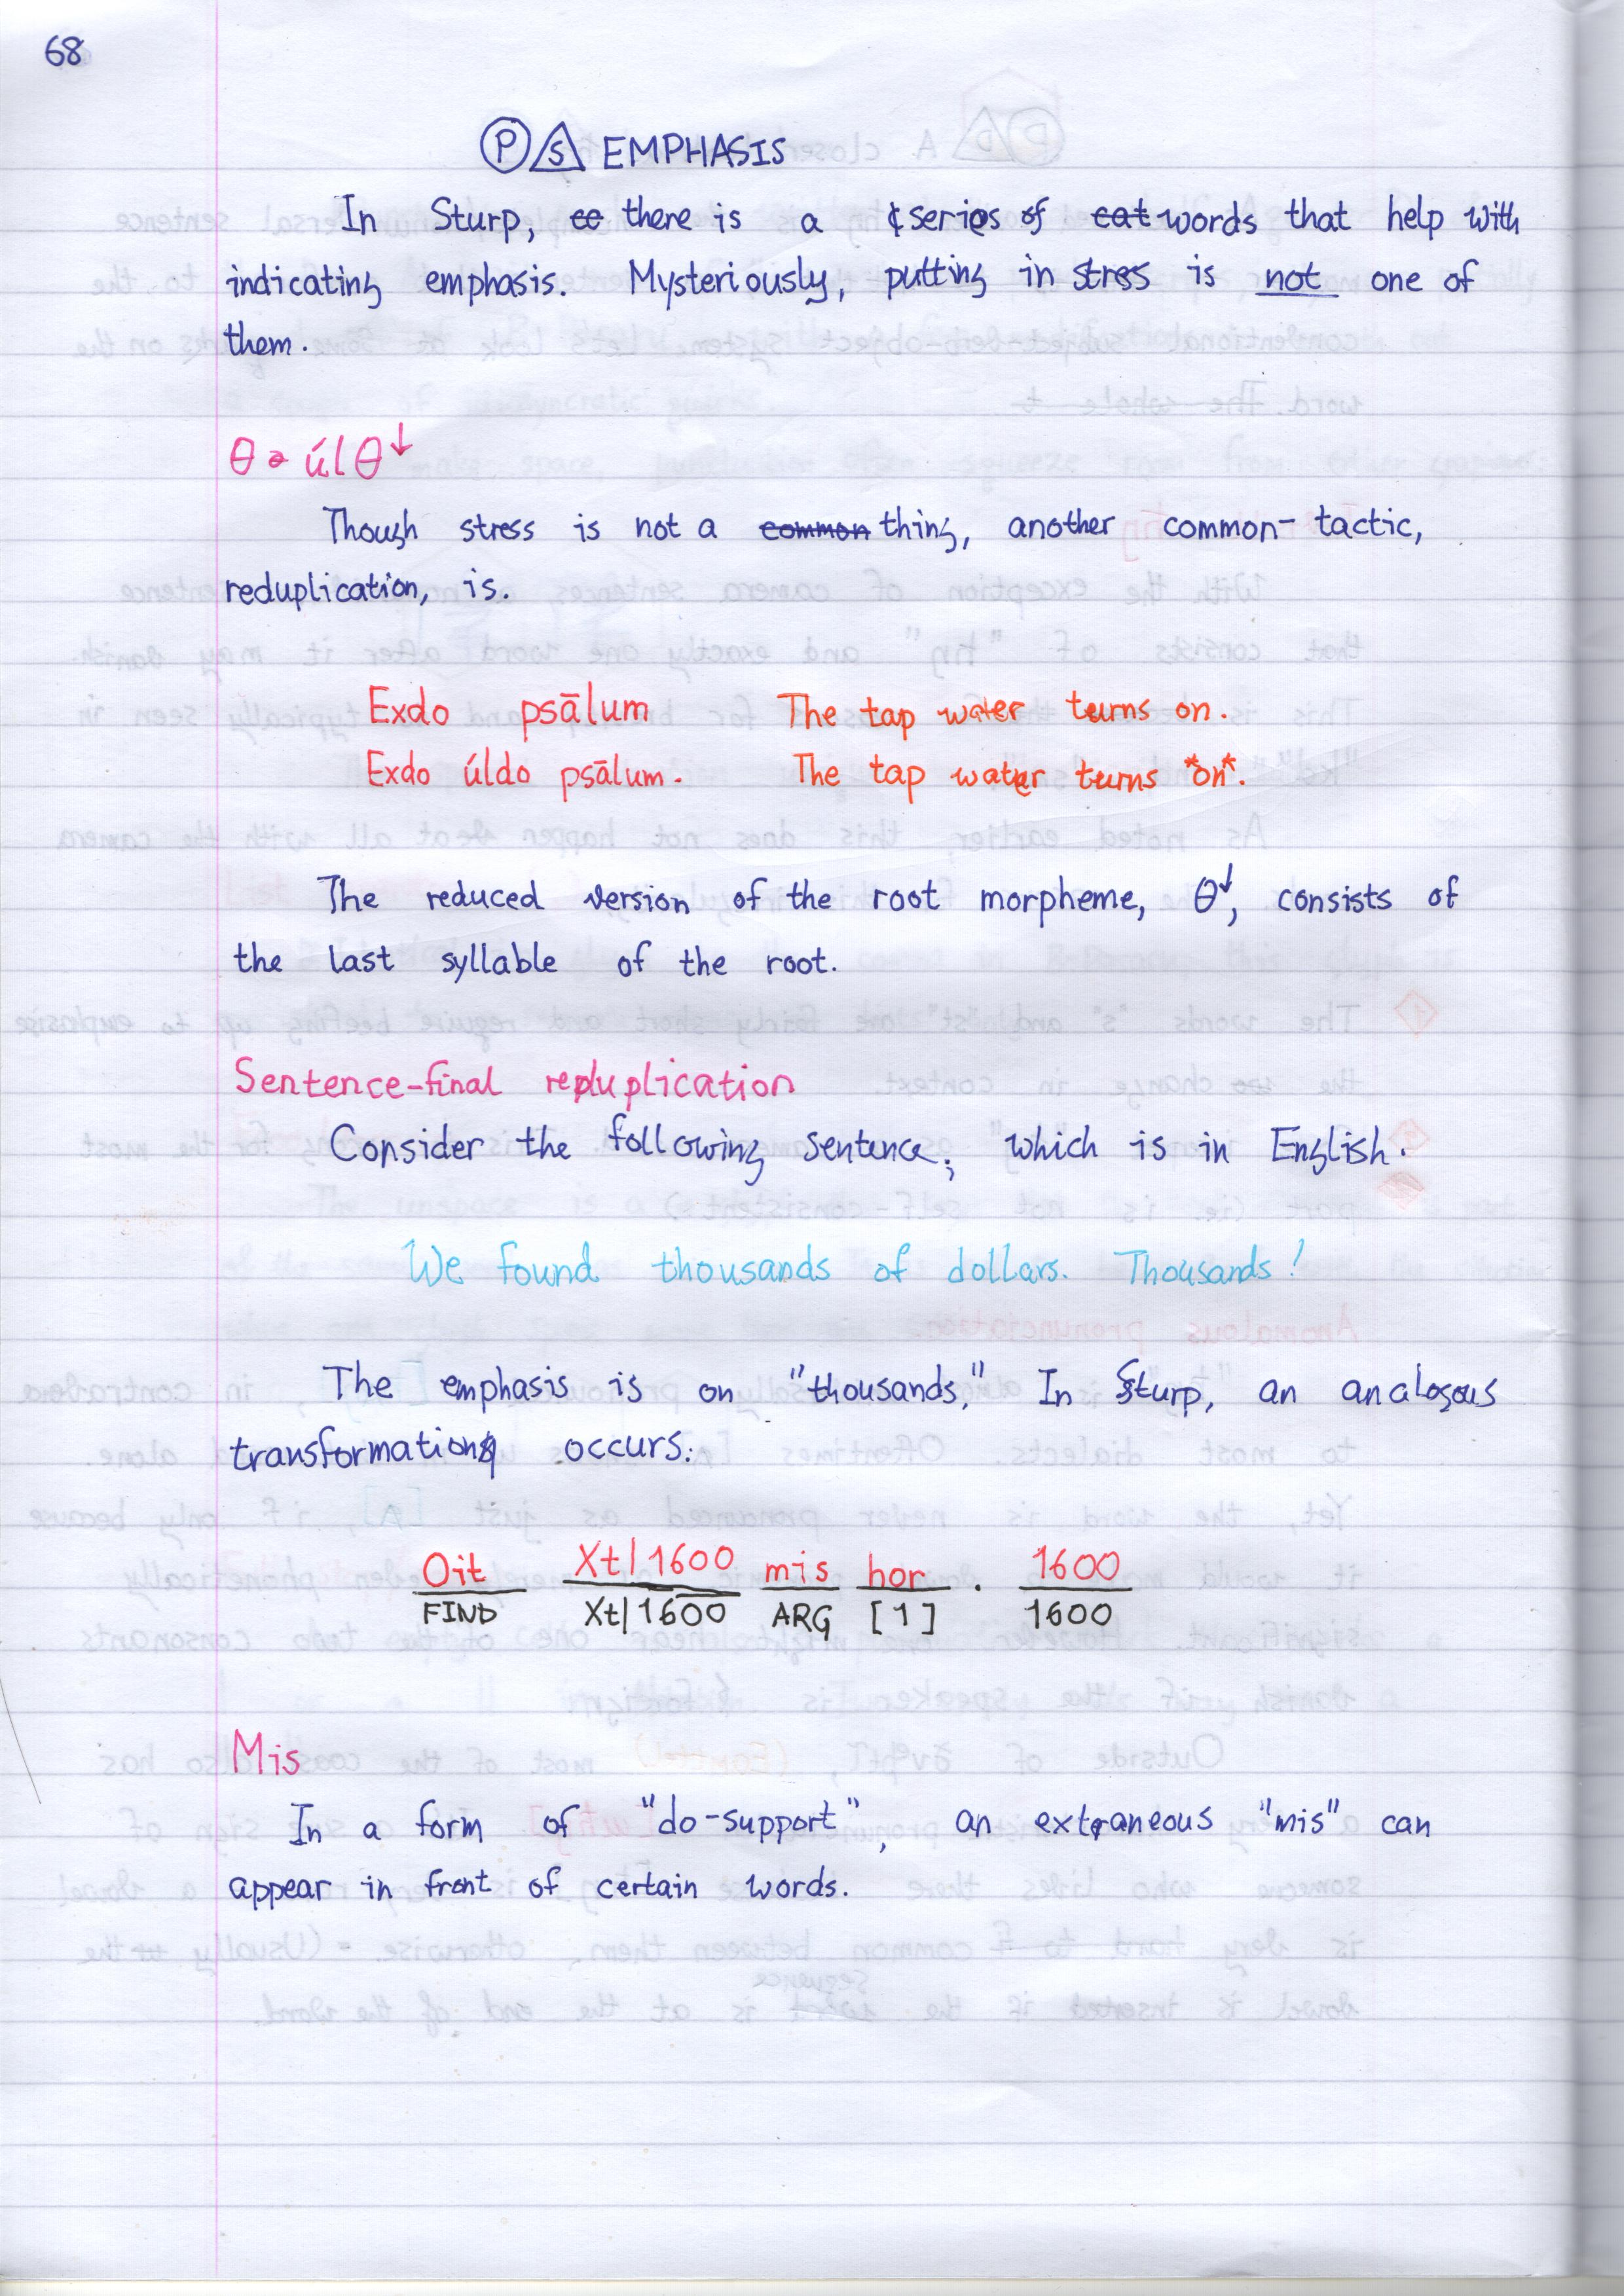 68
P S EMPHASIS
In Sturp, there is a series of words that help with
indicating emphasis. Mysteriously, putting in stress is not one of
them.
θ → úlθ↓
Though stress is not a common thing, another common- tactic,
reduplication, is.
Exdo psālum The tap water turns on.
Exdo úldo psālum. The tap water turns *on*.
The reduced version of the root morpheme, θ↓, consists of
the last syllable of the root.
Sentence-final reduplication
Consider the following sentence, which is in English.
We found thousands of dollars. Thousands!
The emphasis is on "thousands." In Sturp, an analogous
transformation occurs:
Oit Xt|1600 mis hor . 1600
FIND Xt|1600 ARG [1] 1600
Mis
In a form of "do-support", an extraneous "mis" can
appear in front of certain words.